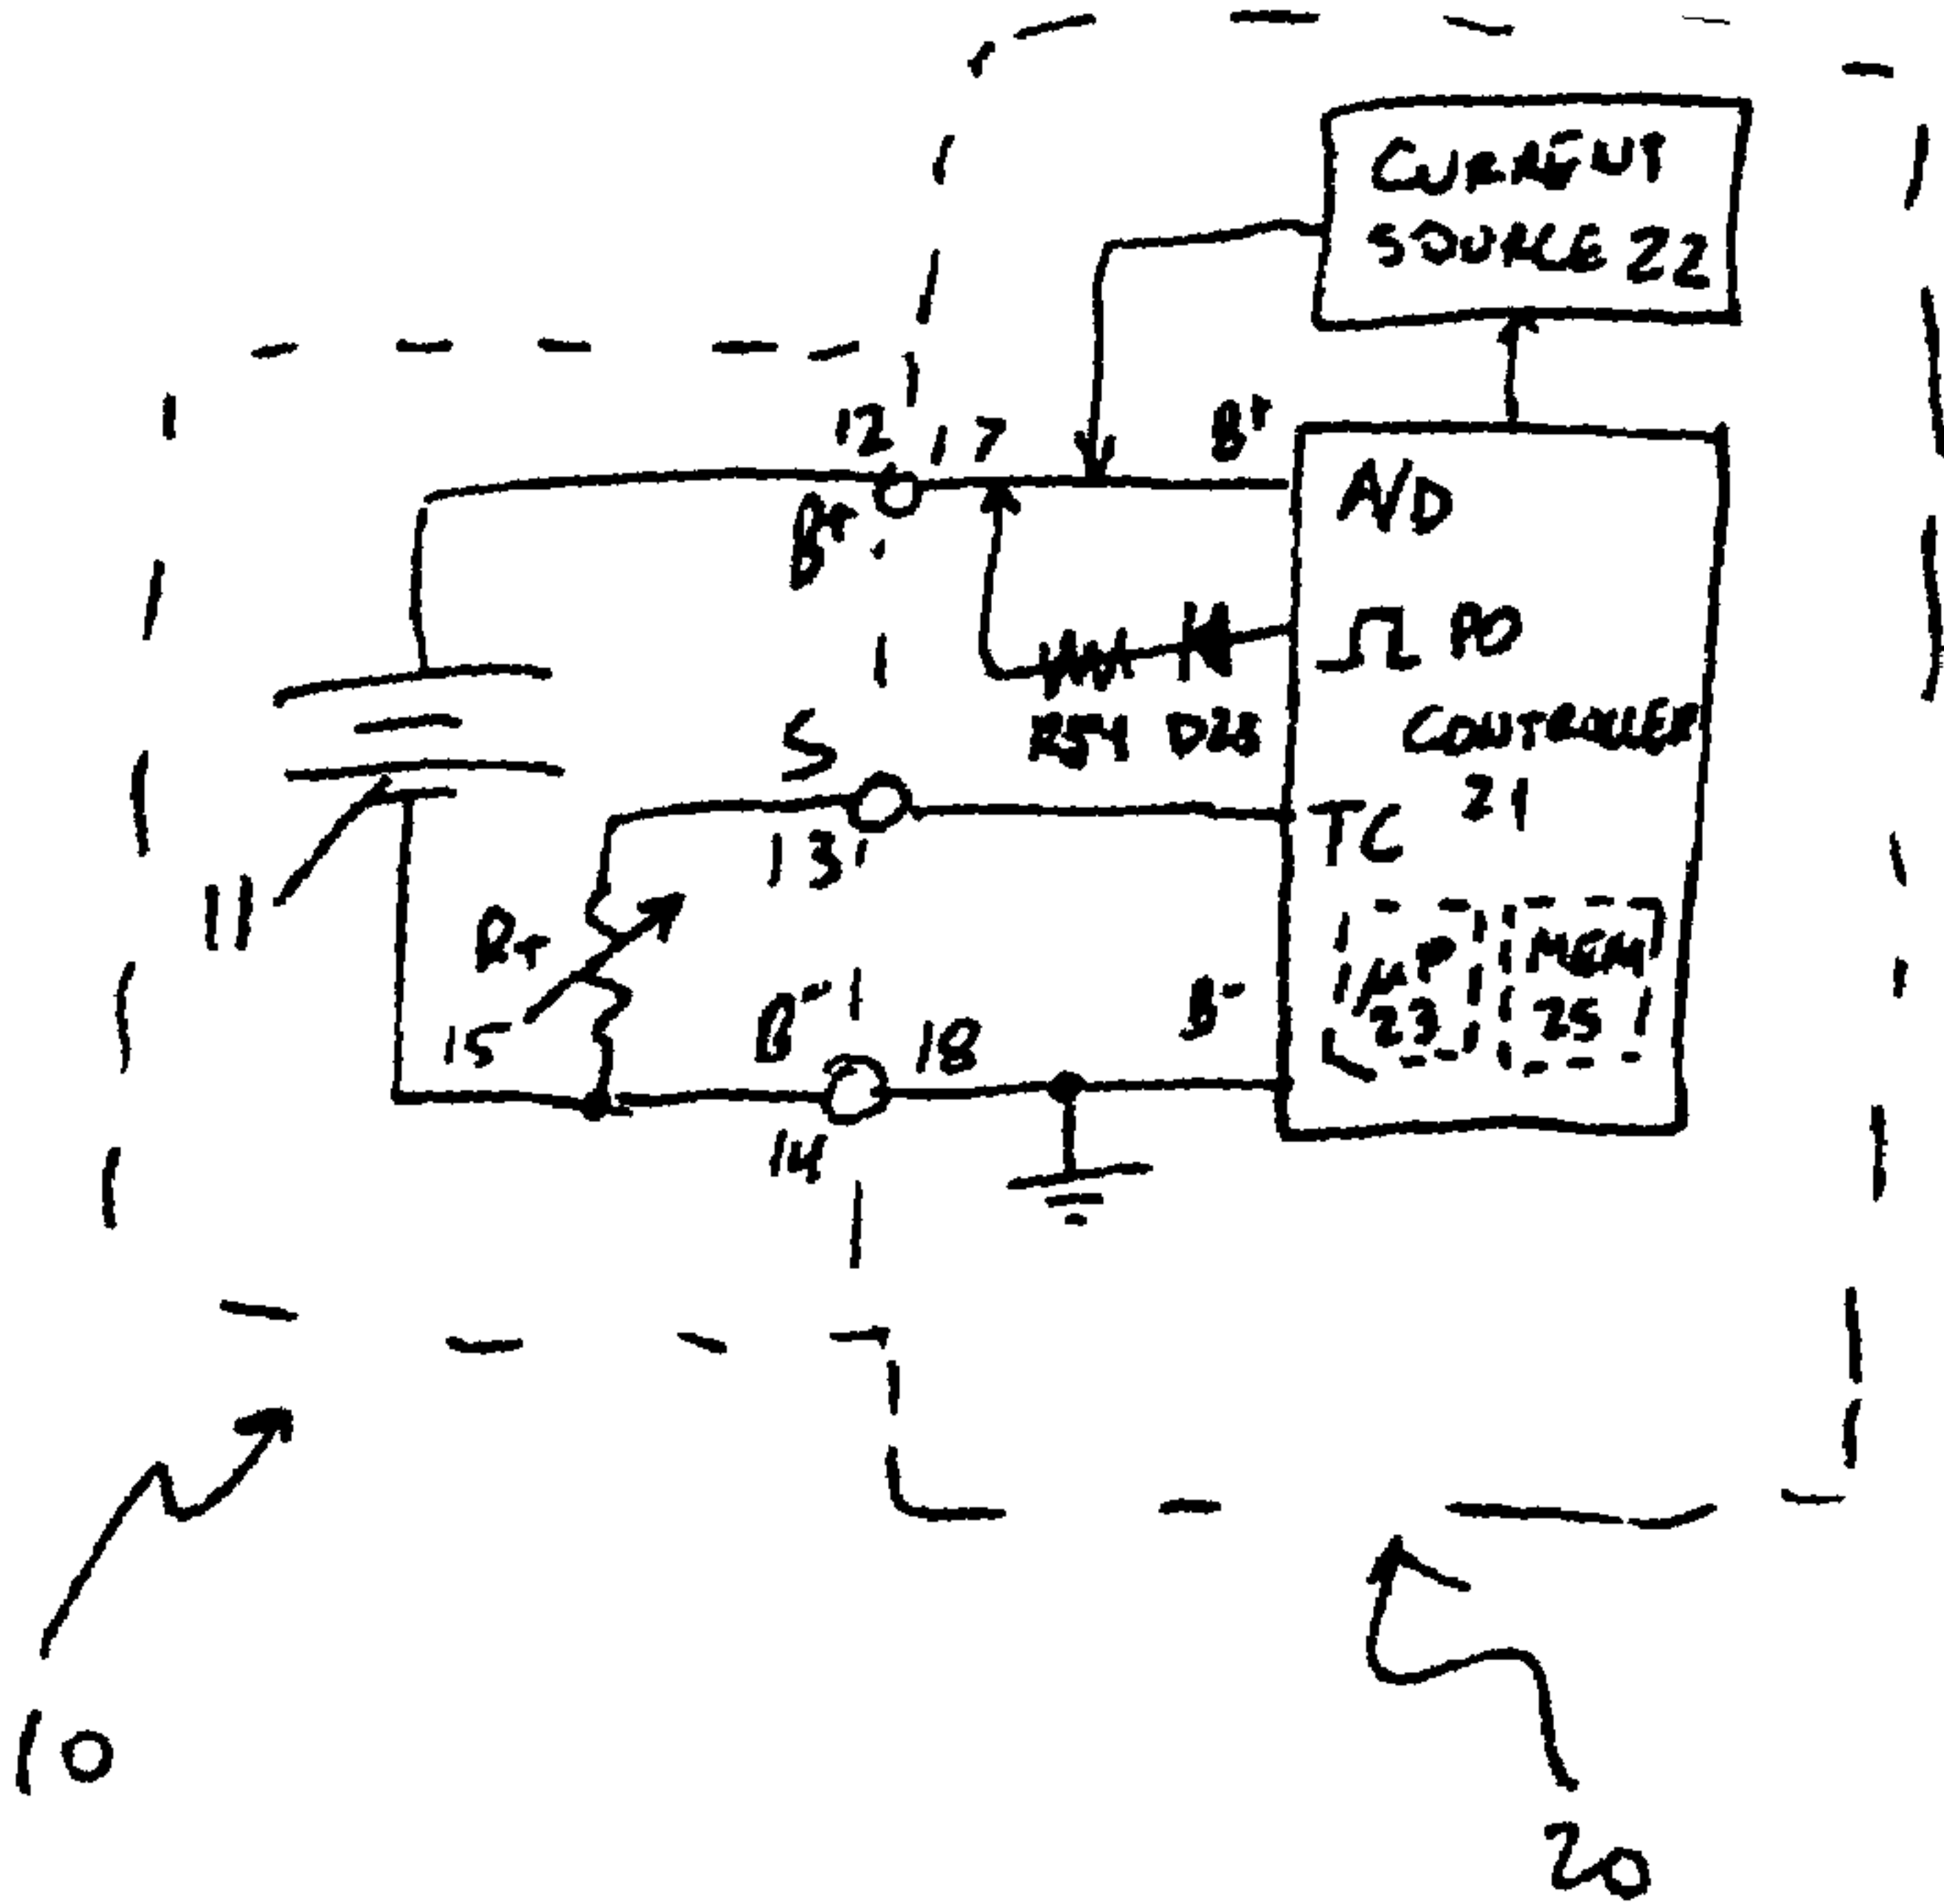 CURRENT
SOURCE 22
12
17
B+
B+
A/D
PD
R54 D28
CONTROLLER
21
S
13
TC
11
RT
15
B-
18
B-
μP
23
MEM
25
14
10
20